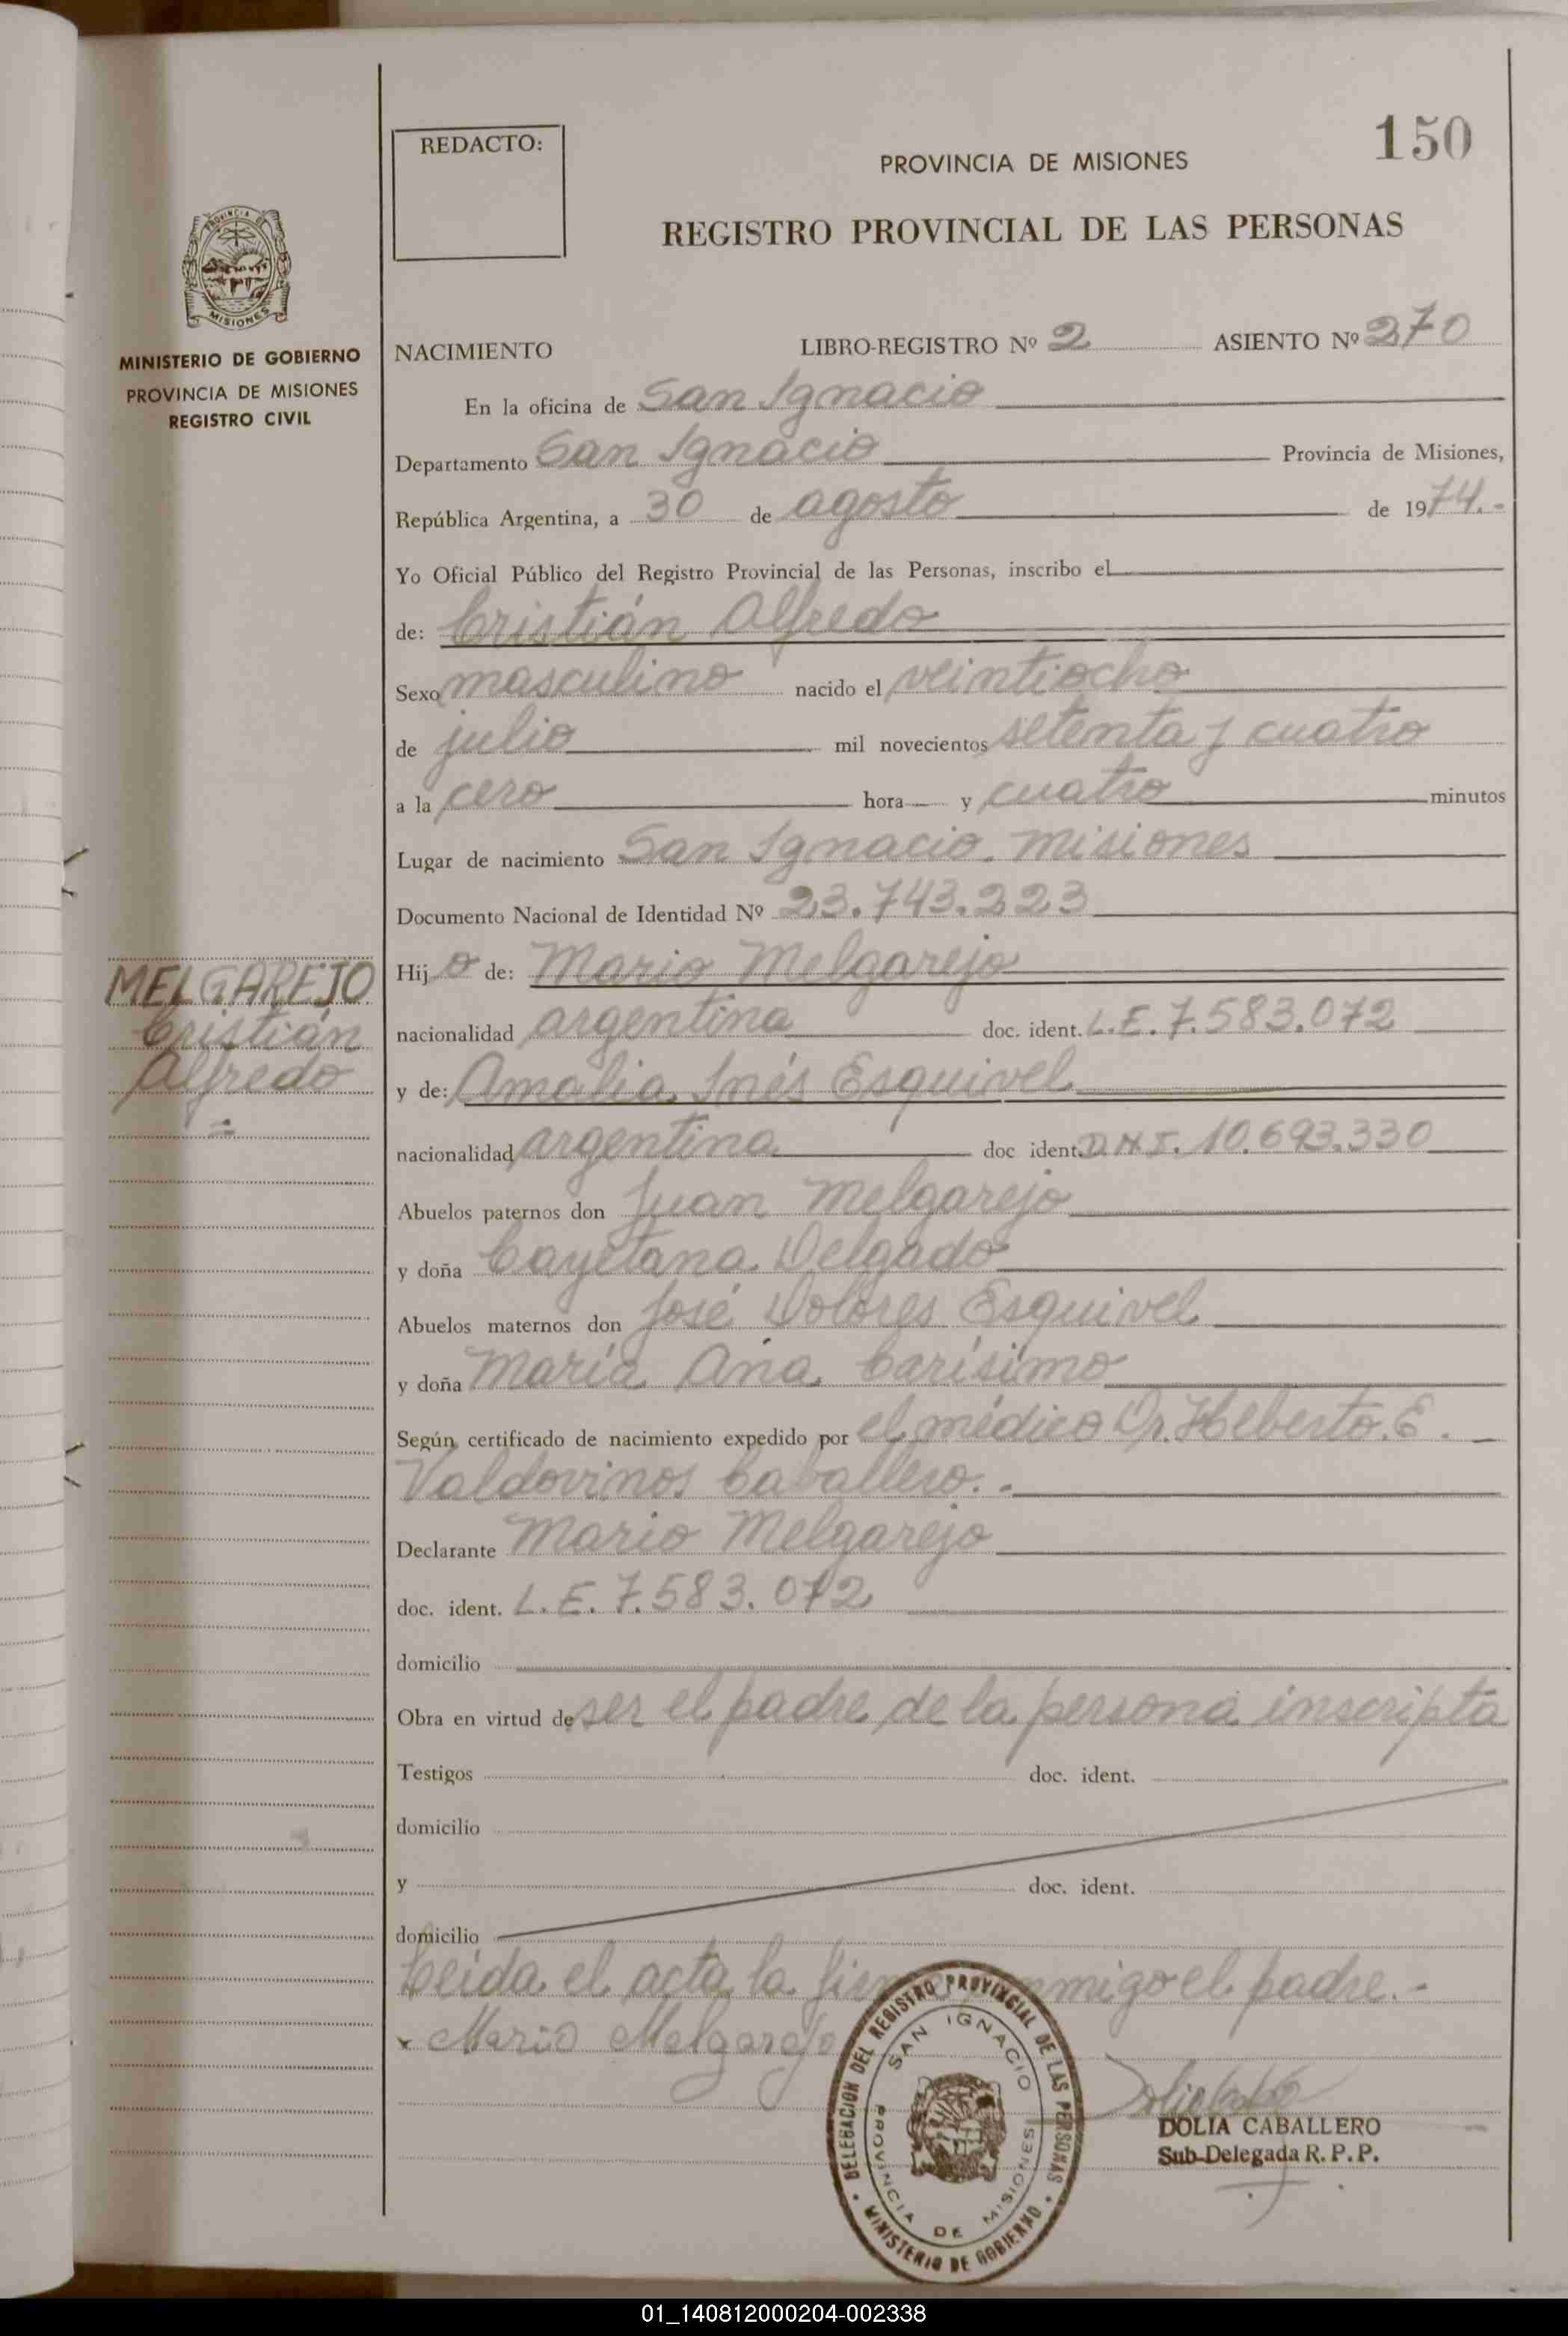 150
REDACTO:
PROVINCIA DE MISIONES
REGISTRO PROVINCIAL DE LAS PERSONAS
PROVINCIA DE
MISIONES
MINISTERIO DE GOBIERNO
PROVINCIA DE MISIONES
REGISTRO CIVIL
NACIMIENTO LIBRO-REGISTRO Nº 2 ASIENTO Nº 270
En la oficina de San Ignacio
Departamento San Ignacio Provincia de Misiones,
República Argentina, a 30 de agosto de 1974.-
Yo Oficial Público del Registro Provincial de las Personas, inscribo el
de: Cristián Alfredo
Sexo masculino nacido el veintiocho
de julio mil novecientos setenta y cuatro
a la cero hora y cuatro minutos
Lugar de nacimiento San Ignacio. Misiones
Documento Nacional de Identidad Nº 23.743.223
Hij o de: Mario Melgarejo
nacionalidad argentina doc. ident. L.E. 7.583.072
y de: Amalia Inés Esquivel
nacionalidad argentina doc ident. D.N.I. 10.693.330
Abuelos paternos don Juan Melgarejo
y doña Cayetana Delgado
Abuelos maternos don José Dolores Esquivel
y doña María Ana Carísimo
Según certificado de nacimiento expedido por el médico Dr. Heberto E.
Valdovinos Caballero.-
Declarante Mario Melgarejo
doc. ident. L.E. 7.583.072
domicilio
Obra en virtud de ser el padre de la persona inscripta
Testigos doc. ident.
domicilio
y doc. ident.
domicilio
Leída el acta la conmigo el padre.-
Mario Melgarejo
MELGAREJO
Cristián
Alfredo
=
DELEGACION DEL REGISTRO PROVINCIAL DE LAS PERSONAS
SAN IGNACIO
PROVINCIA DE MISIONES
MINISTERIO DE GOBIERNO
DOLIA CABALLERO
Sub-Delegada R. P. P.
01_140812000204-002338